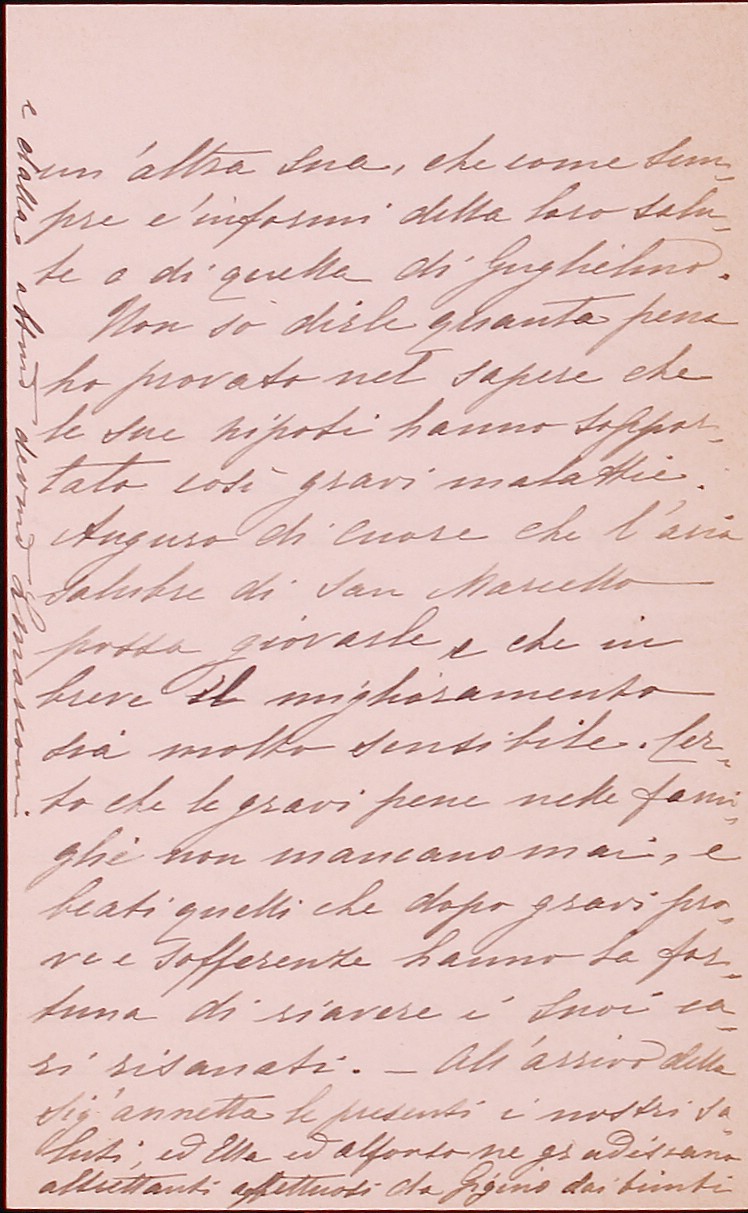 un'altra sua, che come sem-
pre c'informi della loro salu-
te e di quella di Guglielmo.
Non so dirle quanta pena
ho provato nel sapere che
le sue nipoti hanno soppor-
tato così gravi malattie.
Auguro di cuore che l'aria
salubre di San Marcello
possa giovarle, e che in
breve il miglioramento
sia molto sensibile. Cer-
to che le gravi pene nelle fami-
glie non mancano mai, e
beati quelli che dopo gravi pro-
ve e sofferenze hanno la for-
tuna di riavere i suoi ca-
ri risanati. – All'arrivo della
Sig.ª Annetta le presenti i nostri sa-
luti, ed Ella ed Alfonso ne gradiscano
altrettanti affettuosi da Gigino dai bimbi
e dalla